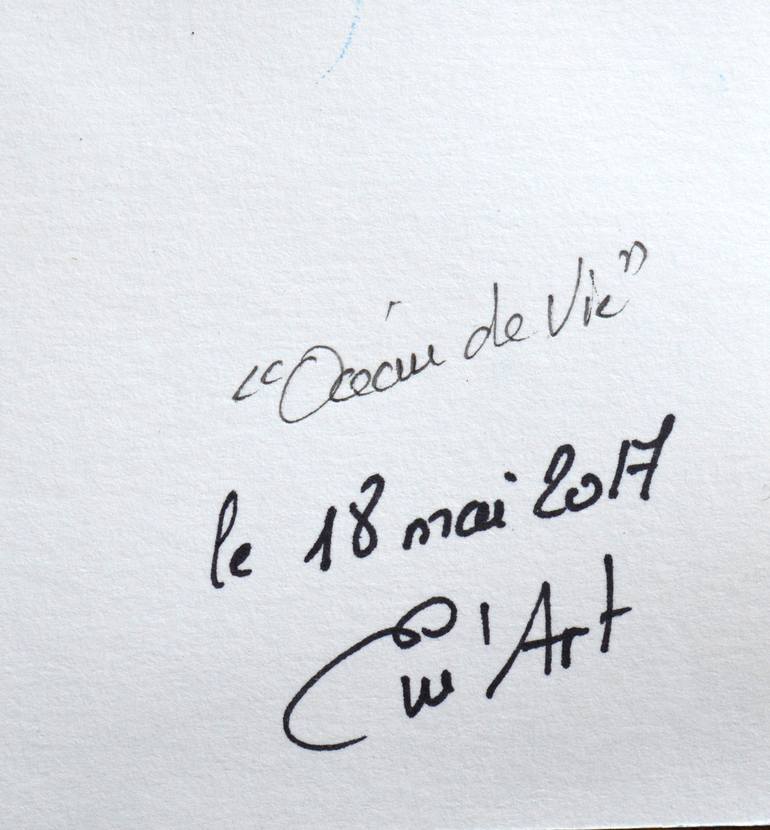 "Océan de Vie"
le 18 mai 2017
'Art